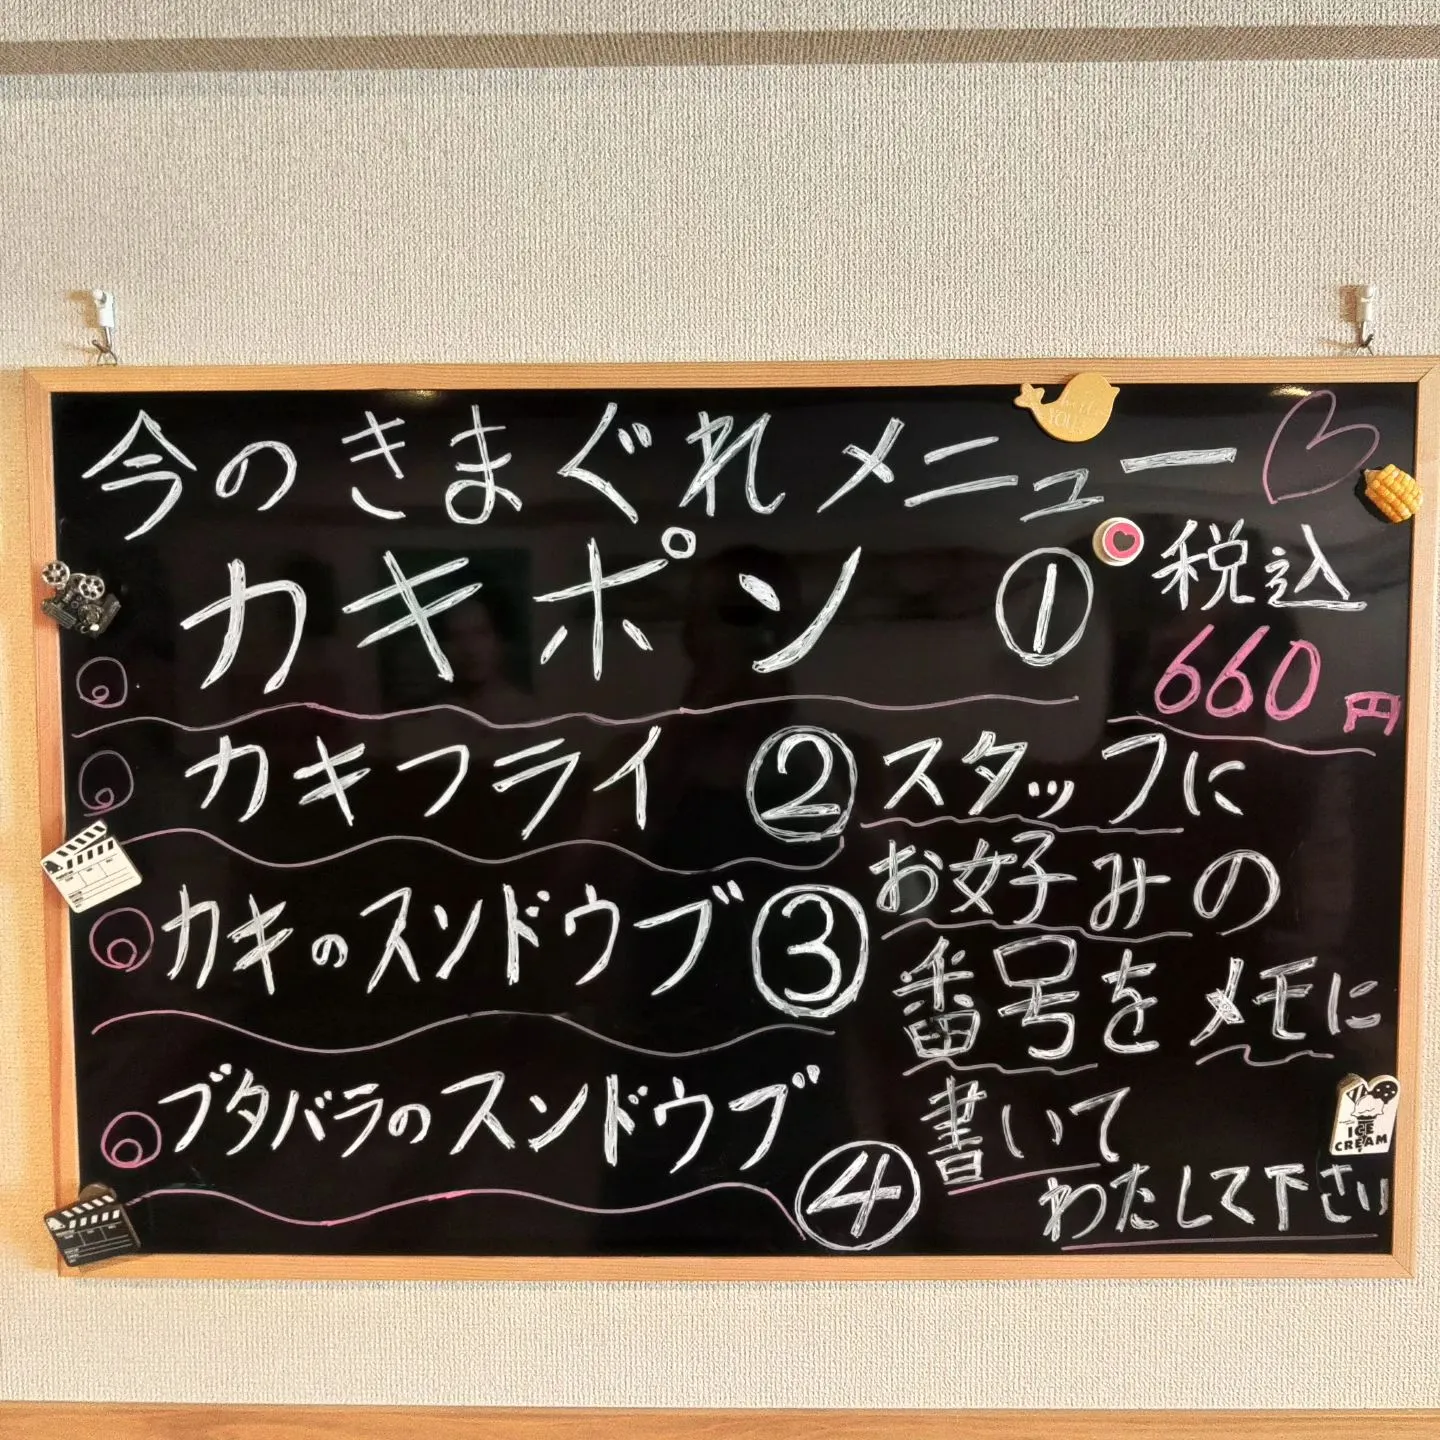 今のきまぐれメニュー
カキポン ①
税込
660円
カキフライ ②
カキのスンドウブ ③
ブタバラのスンドウブ ④
スタッフに
お好みの
番号をメモに
書いて
わたして下さい
ICE
CREAM